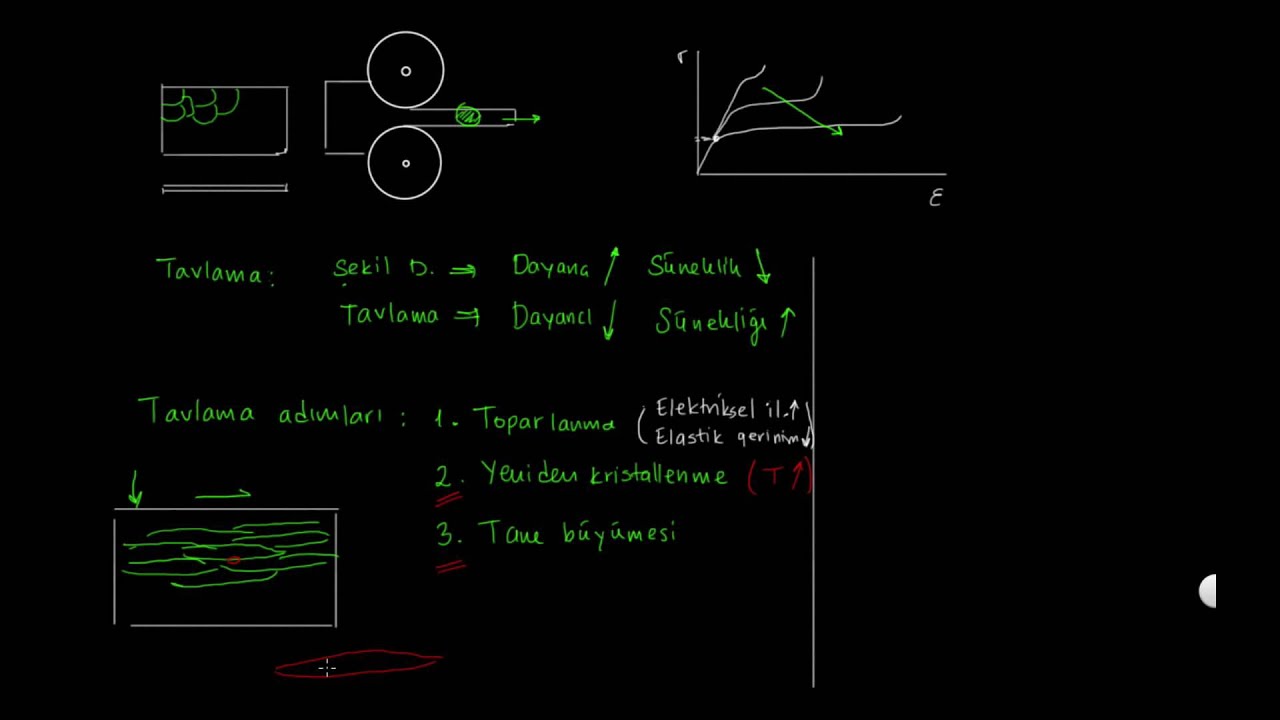 σ
ε
Tavlama: Şekil D. ⇒ Dayanç ↑ Süneklik ↓
Tavlama ⇒ Dayancı ↓ Sünekliği ↑
Tavlama adımları: 1. Toparlanma (Elektriksel il. ↑
Elastik gerinim ↓)
2. Yeniden kristallenme (T ↑)
3. Tane büyümesi